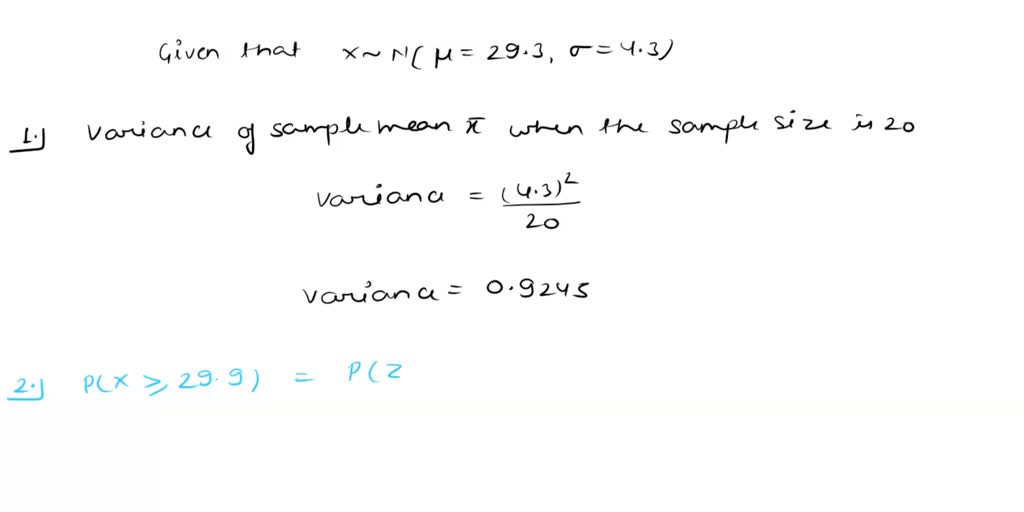 Given that x ~ N( μ = 29.3, σ = 4.3)
1.) Variance of sample mean x̄ when the sample size is 20
variance = (4.3)² / 20
variance = 0.9245
2.) P(X ≥ 29.9) = P(Z